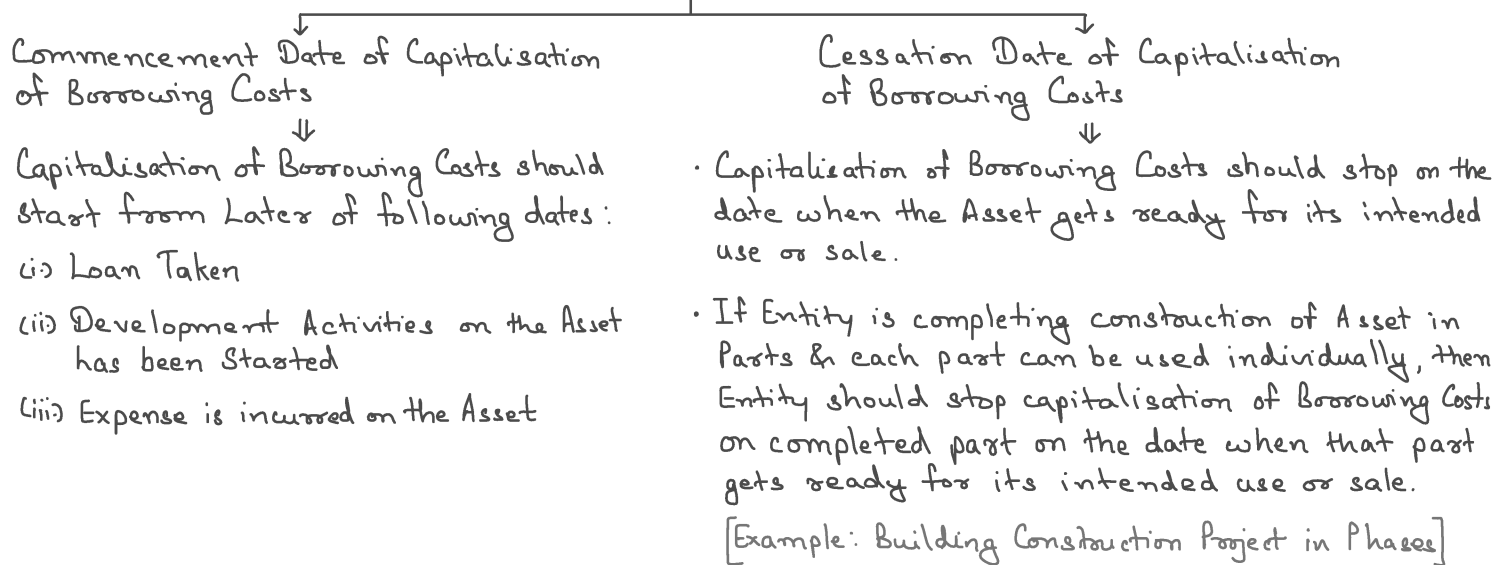 Commencement Date of Capitalisation
of Borrowing Costs
⇓
Capitalisation of Borrowing Costs should
start from Later of following dates:
(i) Loan Taken
(ii) Development Activities on the Asset
has been Started
(iii) Expense is incurred on the Asset
Cessation Date of Capitalisation
of Borrowing Costs
⇓
· Capitalisation of Borrowing Costs should stop on the
date when the Asset gets ready for its intended
use or sale.
· If Entity is completing construction of Asset in
Parts & each part can be used individually, then
Entity should stop capitalisation of Borrowing Costs
on completed part on the date when that part
gets ready for its intended use or sale.
[Example: Building Construction Project in Phases]